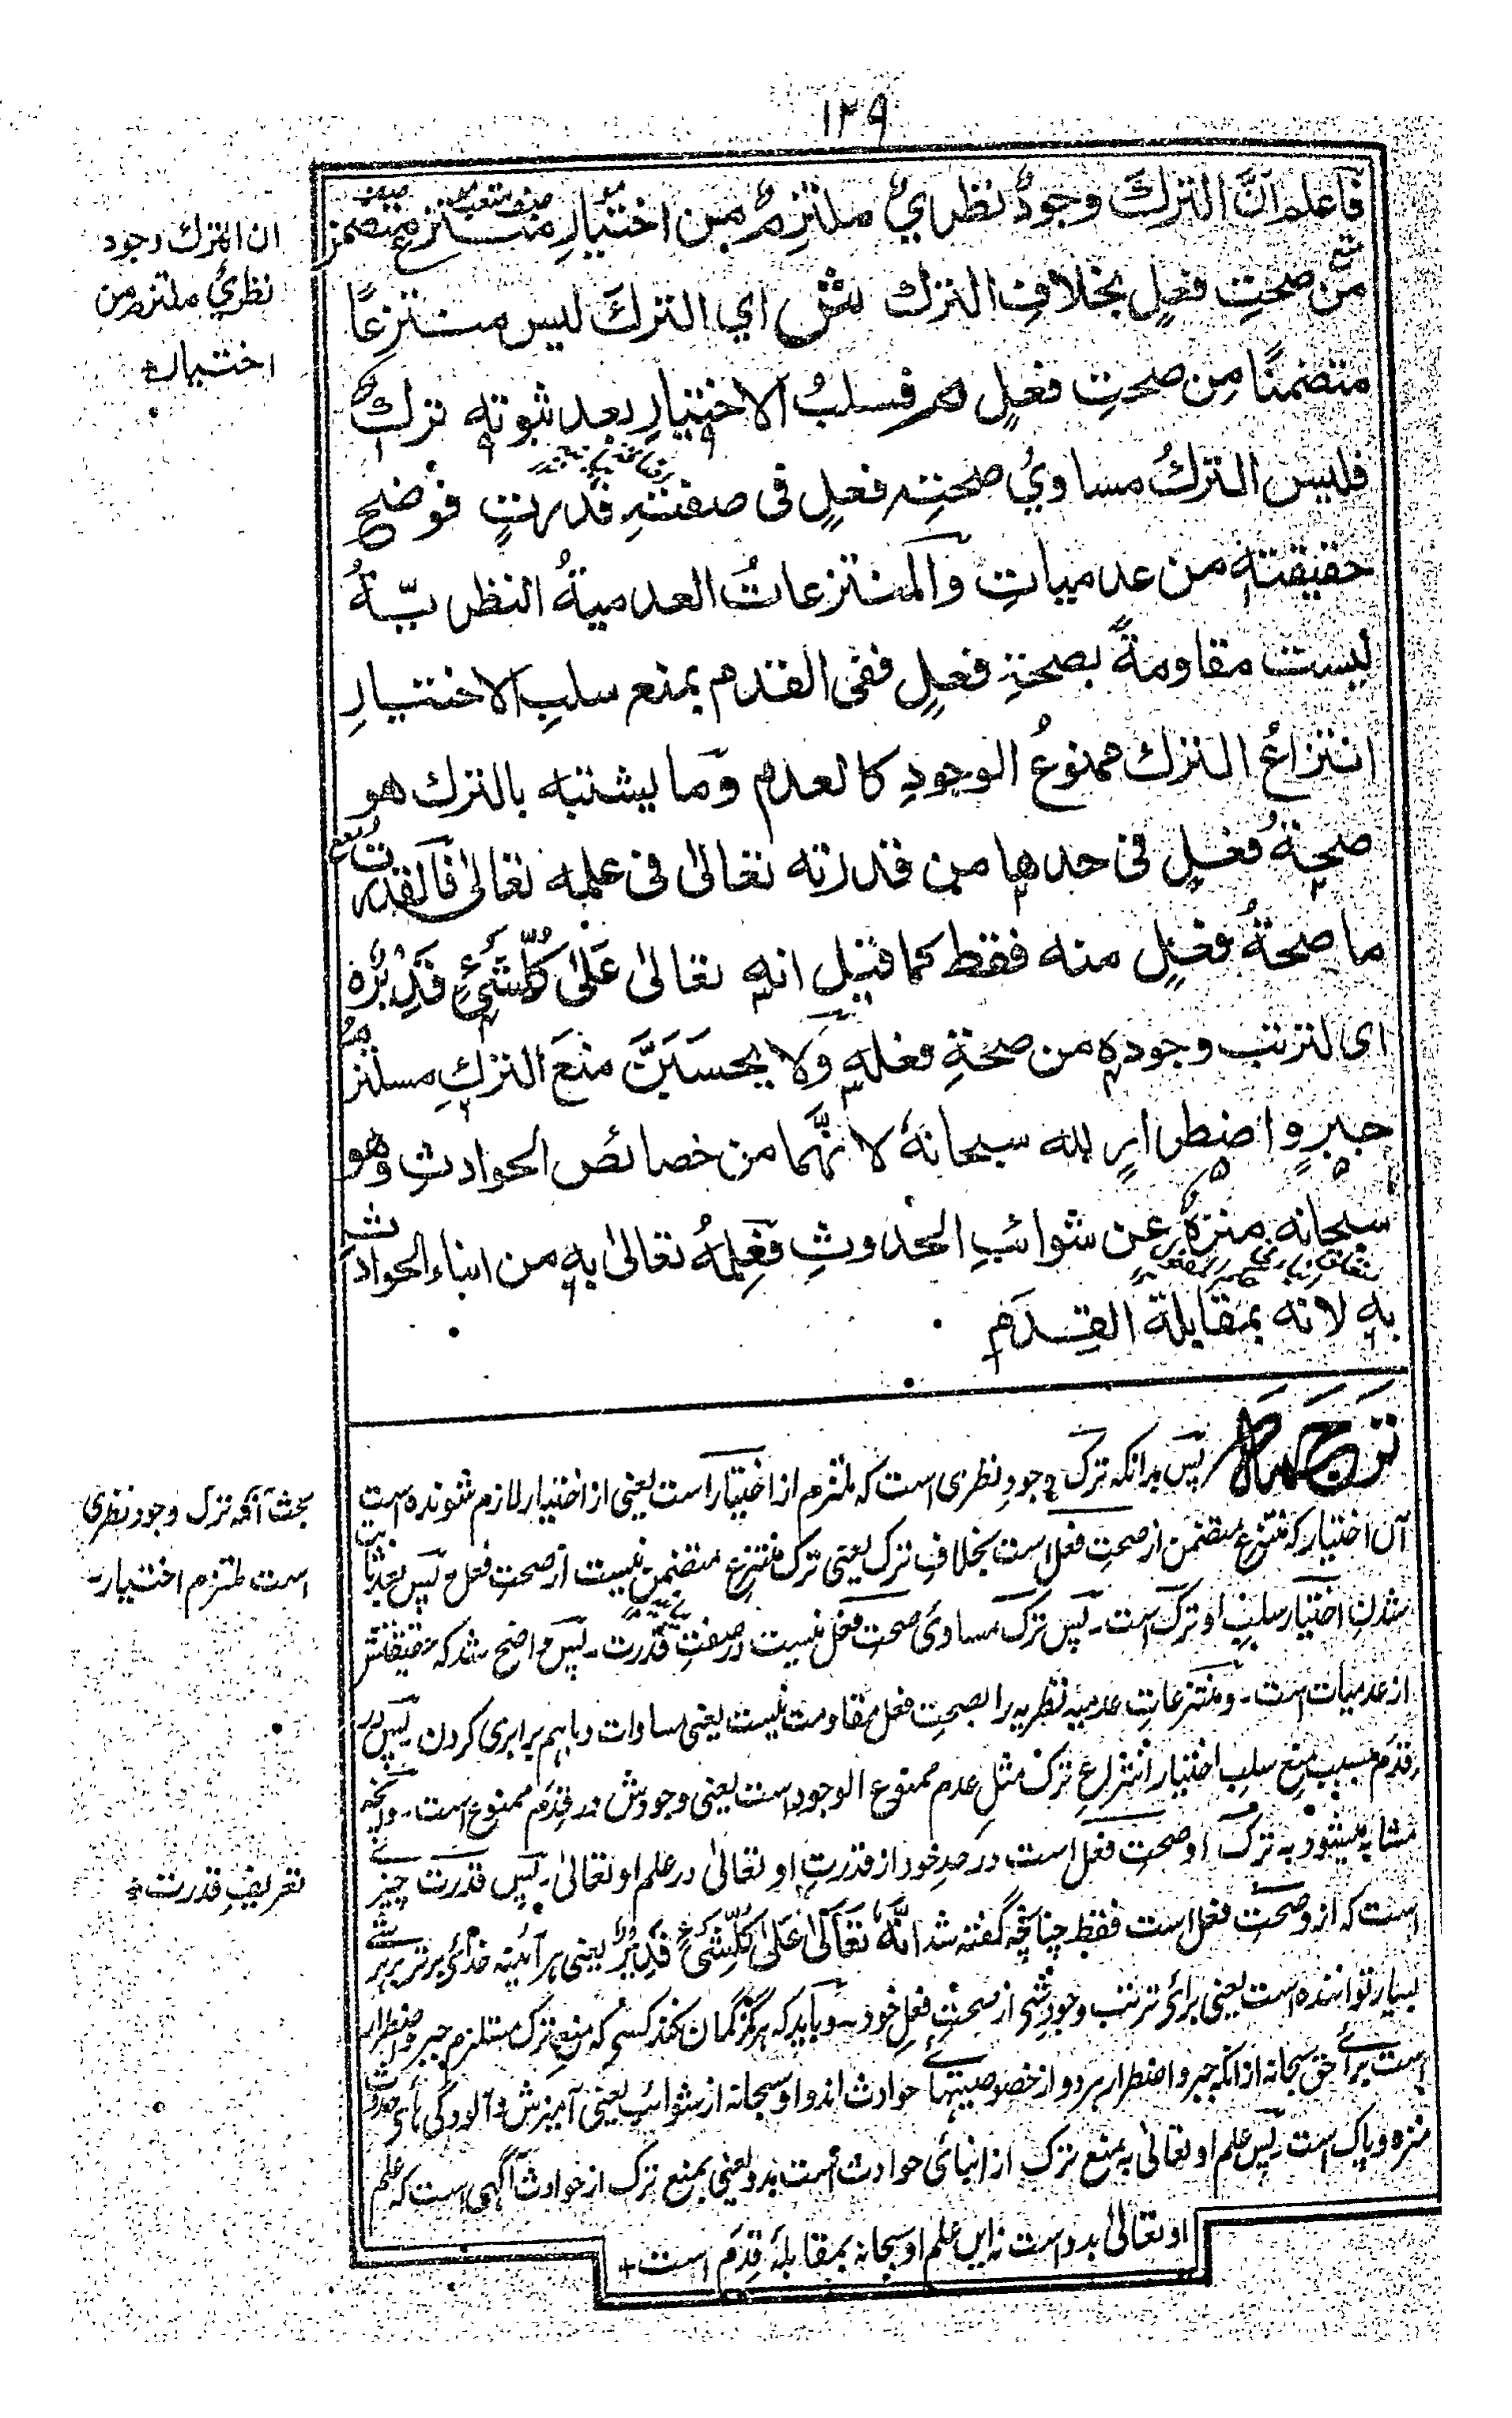 ١٢٩
فاعلم انَّ التركَ وجودٌ نظريٌ ملتزمٌ من اختيارِ منتزعٍ متضمن
من صحتِ فعلٍ بخلافِ الترك ش اي التركَ ليس منتزعًا
متضمنًا مِن صحتِ فعلٍ م فسلبُ الاختيارِ بعد ثبوته تركٌ
فليس التركُ مساويُ صحتِ فعلٍ فى صفتهِ قدرتٍ فوضح
حقيقته من عدمياتِ والمنتزعاتُ العدميةُ النظريّةُ
ليست مقاومةً بصحةِ فعلٍ ففى القدم بمنع سلبِ الاختيارِ
انتزاعُ الترك ممنوعُ الوجودِ كالعدم وما يشتبه بالترك هو
صحةُ فعلٍ فى حدها من قدرته تعالىٰ فى علمه تعالىٰ فالقدرت
ما صحةُ فعلٍ منه فقط كما قيل انه تعالىٰ عَلىٰ كُلِّ شَیْءٍ قَدِيْرٌ ه
اى لترتب وجوده من صحةِ فعله ولا يحسبَنَّ منعَ التركِ مستلزم
جبرٍ واضطرارٍ لله سبحانهٗ لانّهما من خصائص الحوادثِ وهو
سبحانه منزهٌ عن شوائبِ الحدوثِ فعِلمُهُ تعالىٰ بهِ من انباءِ الحوادث
بهِ لانه بمقابلة القِدَم
ان الترك وجود
نظريٌ ملتزم من
اختيار
ترجمه پس بدانکه ترک وجودِ نظری است که ملتزم از اختیار است یعنی از اختیار لازم شونده است
آں اختیار که منتزع متضمن از صحتِ فعل است بخلافِ ترک یعنی ترک منتزع متضمن نیست از صحتِ فعل پس بعد ثابت
شدنِ اختیار سلبِ او ترک است ۔ پس ترک مساویٔ صحت فعل نیست در صفتِ قدرت ۔ پس واضح شد که حقیقتش
از عدمیات است ۔ و منتزعاتِ عدمیه نظریه را بصحتِ فعل مقاومت نیست یعنی مساوات و باہم برابری کردن پس در
قِدَم بسببِ منعِ سلبِ اختیار انتزاعِ ترک مثلِ عدم ممنوع الوجود است یعنی وجودش در قِدَم ممنوع است ۔ وآنچه
مشابه میشود به ترک او صحت فعل است در حدِ خود از قدرتِ او تعالیٰ در علم او تعالیٰ ۔ پس قدرت چیزے
است که ازو صحت فعل است فقط چنانچه گفته شد انّه تَعَالیٰ عَلیٰ کُلِّ شَیْءٍ قَدِیْرٌ یعنی ہر آئینه خدائے برتر بر ہر شے
بسیار تواننده است یعنی برائے ترتب وجودِ شی از صحتِ فعلِ خود ۔ و باید که ہرگز گمان نکند کسی که منعِ ترک مستلزم جبر و اضطرار
است برائے حق سبحانه ازانکه جبر و اضطرار ہر دو از خصوصیتہائے حوادث اند و او سبحانه از شوائبِ یعنی آمیزش و آلودگی ہائے حدوث
منزه و پاک است پس علم او تعالیٰ به منع ترک از انبائی حوادث است بدو یعنی بمنع ترک از حوادث آگہی است که علم
او تعالیٰ بدو است نه ایں علم او سبحانه بمقابلۂ قِدَم است +
بحث آنکه ترک وجود نظری
است ملتزم اختیار ۔
تعریفِ قدرت